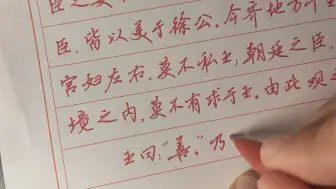 臣之妾
臣，皆以美于徐公。今齐地方千里
宫妇左右，莫不私王；朝廷之臣
境之内，莫不有求于王。由此观之
王曰：“善。”乃